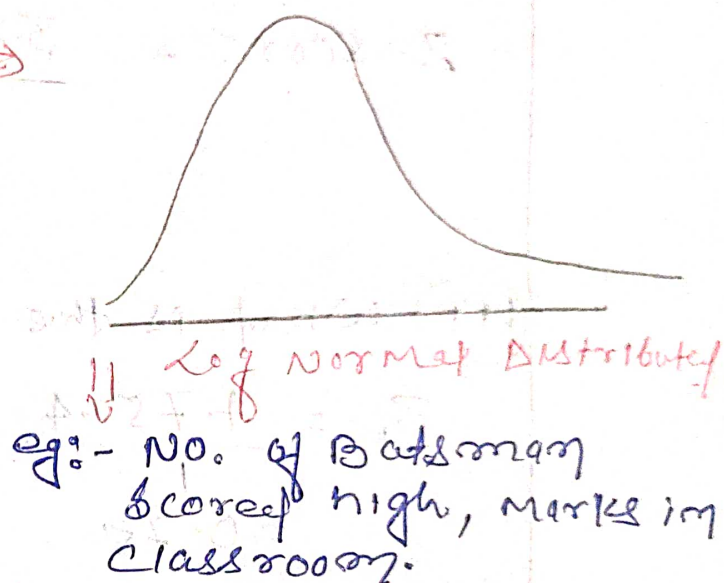 Log Normal Distributed
eg:- No. of Batsman
Scored high, marks in
Classroom.